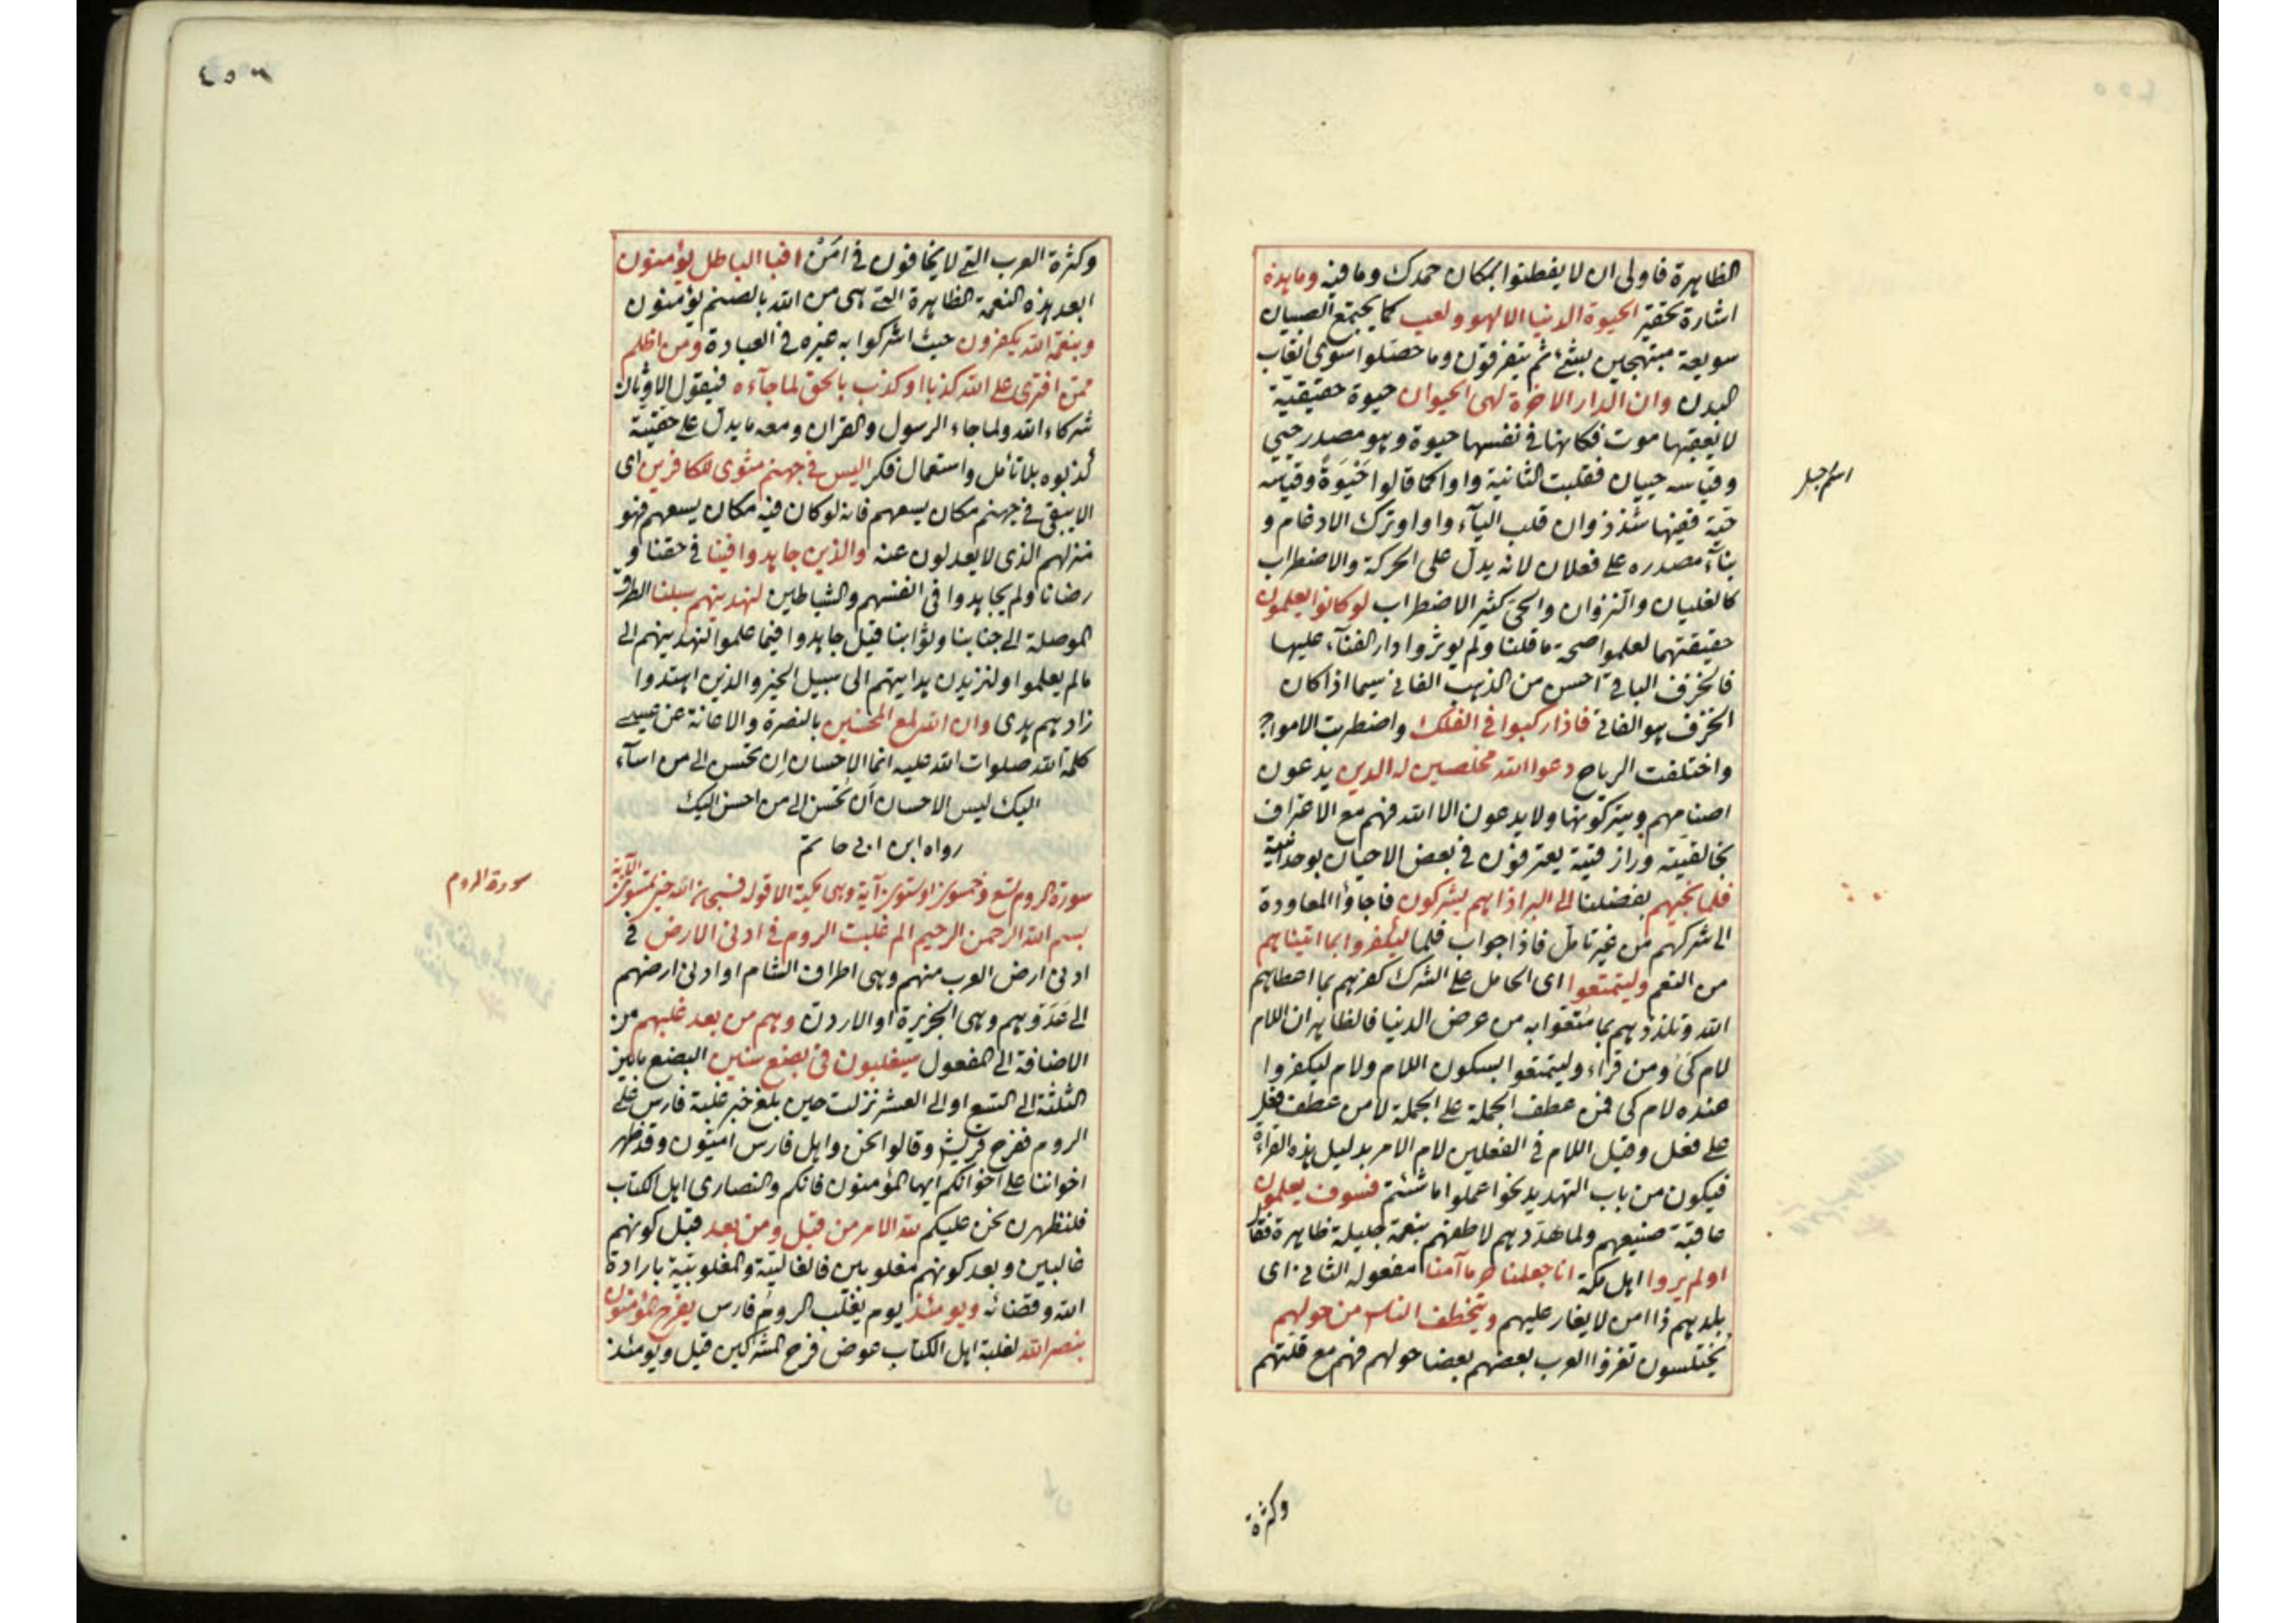 الظاهرة فاولى ان لا يفطنوا بمكان حمدك وما فيه وما هذه
اشارة تحقير الحيوة الدنيا الا لهو ولعب كما يجتمع الصبيان
سويعة مبتهجين بشئ ثم يتفرقون وما حصلوا سوى اتعاب
البدن وان الدار الاخرة لهى الحيوان حيوة حقيقية
لا يعقبها موت فكانها فى نفسها حيوة وهو مصدر حيى
وقياسه حييان فقلبت الثانية واوا كما قالوا حَيْوَة وقياسه
حية ففيها شذذوان قلب اليآء واوا وترك الادغام و
بنآء مصدره على فعلان لانه يدل على الحركة والاضطراب
كالغليان والنزوان والحى كثير الاضطراب لو كانوا يعلمون
حقيقتهما لعلموا صحة ما قلنا ولم يوثروا دار الفنآء عليها
فالخزف الباقى احسن من الذهب الفانى سيما اذا كان
الخزف هو الفانى فاذا ركبوا فى الفلك واضطربت الامواج
واختلفت الرياح دعوا الله مخلصين له الدين يدعون
اصنامهم ويتركونها ولا يدعون الا الله فهم مع الاعتراف
بخالقيته ورازقيته يعترفون فى بعض الاحيان بوحدانيته
فلما نجيهم بفضلنا الى البر اذا هم يشركون فاجاؤا المعاودة
الى شركهم من غير تامل فاذا جواب فلما ليكفروا بما اتيناهم
من النعم وليتمتعوا اى الحامل على الشرك كفرهم بما اعطاهم
الله وتلذذهم بما متعوا به من عرض الدنيا فالظاهر ان اللام
لام كى ومن قراء وليتمتعوا بسكون اللام ولام ليكفروا
عنده لام كى فمن عطف الجملة على الجملة لا من عطف فعل
على فعل وقيل اللام فى الفعلين لام الامر بدليل هذه القراءة
فيكون من باب التهديد نحو اعملوا ما شئتم فسوف يعلمون
عاقبة صنيعهم ولما هددهم لاطفهم بنعمة جليلة ظاهرة فقال
اولم يروا اهل مكة انا جعلنا حرما آمنا مفعوله الثانى اى
بلدهم ذا امن لا يغار عليهم ويتخطف الناس من حولهم
يختلسون تغزوا العرب بعضهم بعضا حولهم فهم مع قلتهم
وكثرة
اسم جبل
وكثرة العرب التى لا يخافون فى امن افبالباطل يؤمنون
ابعد هذه النعمة الظاهرة التى هى من الله بالصنم يؤمنون
وبنعمة الله يكفرون حيث اشركوا به غيره فى العبادة ومن اظلم
ممن افترى على الله كذبا او كذب بالحق لما جآءه فيقول الاوثان
شركاء الله ولما جاء الرسول والقران ومعه ما يدل على حقيته
كذبوه بلا تأمل واستعمال فكر اليس فى جهنم مثوى للكافرين اى
الا يبقى فى جهنم مكان يسعهم فانه لو كان فيه مكان يسعهم فهو
منزلهم الذى لا يعدلون عنه والذين جاهدوا فينا فى حقنا و
رضانا ولم يجاهدوا فى انفسهم والشياطين لنهدينهم سبلنا الطرق
الموصلة الى جنابنا وثوابنا قيل جاهدوا فيما علموا لنهدينهم الى
مالم يعلموا او لنزيدن هدايتهم الى سبيل الخير والذين اهتدوا
زادهم هدى وان الله لمع المحسنين بالنصرة والاعانة عن عيسى
كلمة الله صلوات الله عليه انما الاحسان ان تحسن الى من اسآء
اليك ليس الاحسان ان تحسن الى من احسن اليك
رواه ابن ابى حاتم
سورة الروم تسع وخمسون او ستون آية وهى مكية الا قوله فسبحان الله حين تمسون الآية
بسم الله الرحمن الرحيم الم غلبت الروم فى ادنى الارض فى
ادنى ارض العرب منهم وهى اطراف الشام او ادنى ارضهم
الى عَدُوِّهم وهى الجزيرة او الاردن وهم من بعد غلبهم من
الاضافة الى المفعول سيغلبون فى بضع سنين البضع ما بين
الثلثة الى التسع او الى العشر نزلت حين بلغ خبر غلبة فارس على
الروم ففرح قريش وقالوا نحن واهل فارس اميون وقد ظهر
اخواننا على اخوانكم ايها المؤمنون فانكم والنصارى اهل الكتاب
فلنظهرن نحن عليكم لله الامر من قبل ومن بعد قبل كونهم
غالبين وبعد كونهم مغلوبين فالغالبية والمغلوبية بارادة
الله وقضائه ويومئذ يوم يغلب الروم فارس يفرح المؤمنون
بنصر الله لغلبة اهل الكتاب عوض فرح المشركين قيل ويومئذ
سورة الروم
٤٥٦